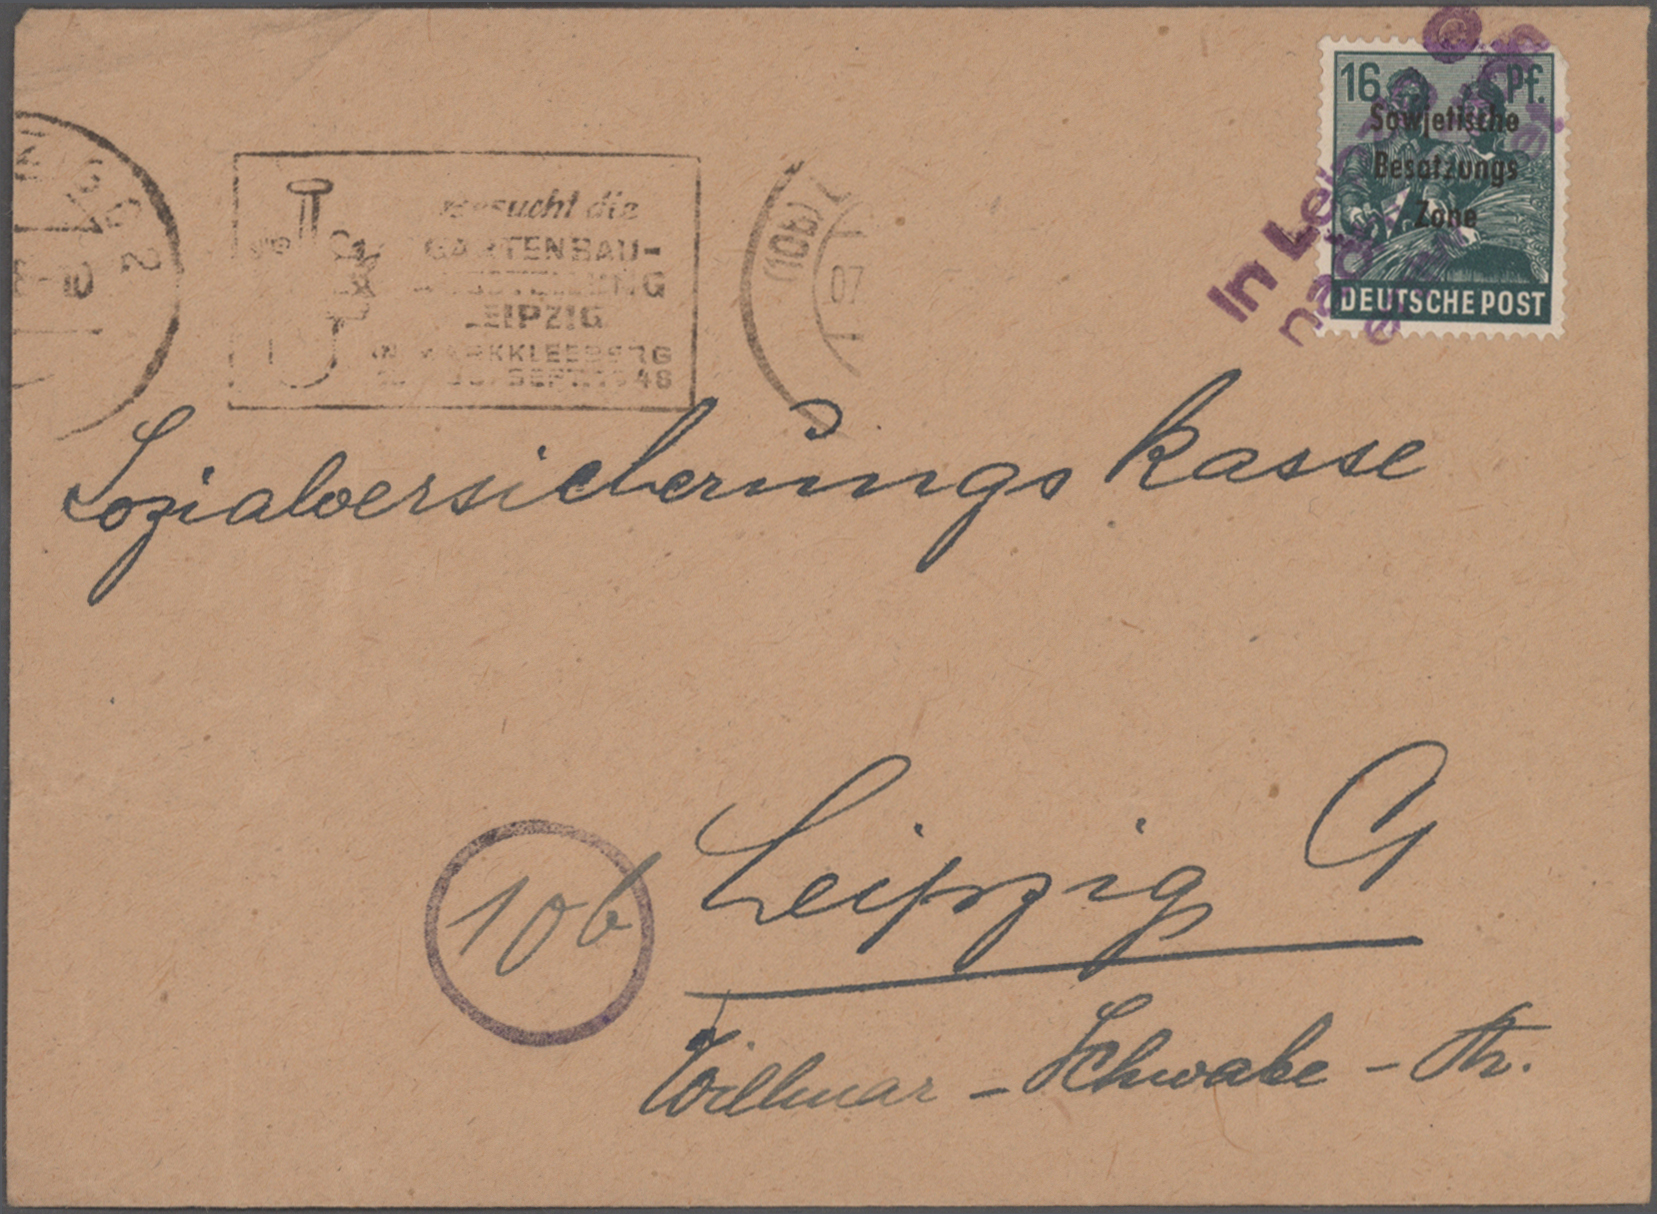 16 Pf.
Sowjetische
Besatzungs
Zone
DEUTSCHE POST
In
nach
(10b)
07
10
2
die
GARTENBAU-
LEIPZIG
IN MARKKLEEBERG
SEPT. 1948
Sozialversicherungskasse
10b
Leipzig
Willmar-Schwabe-Str.